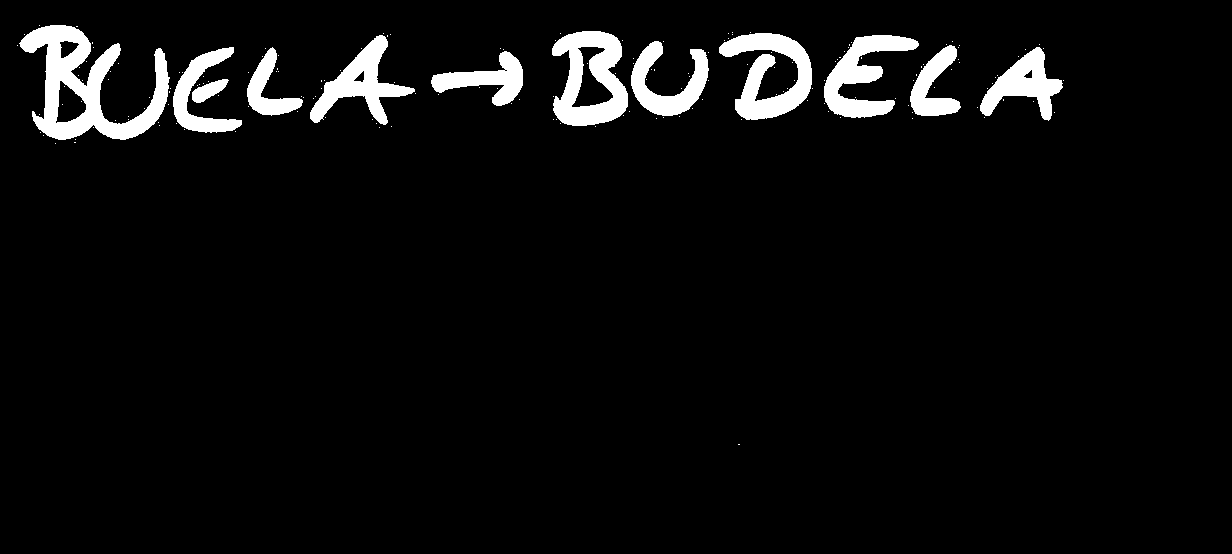 BUELA → BUDELA